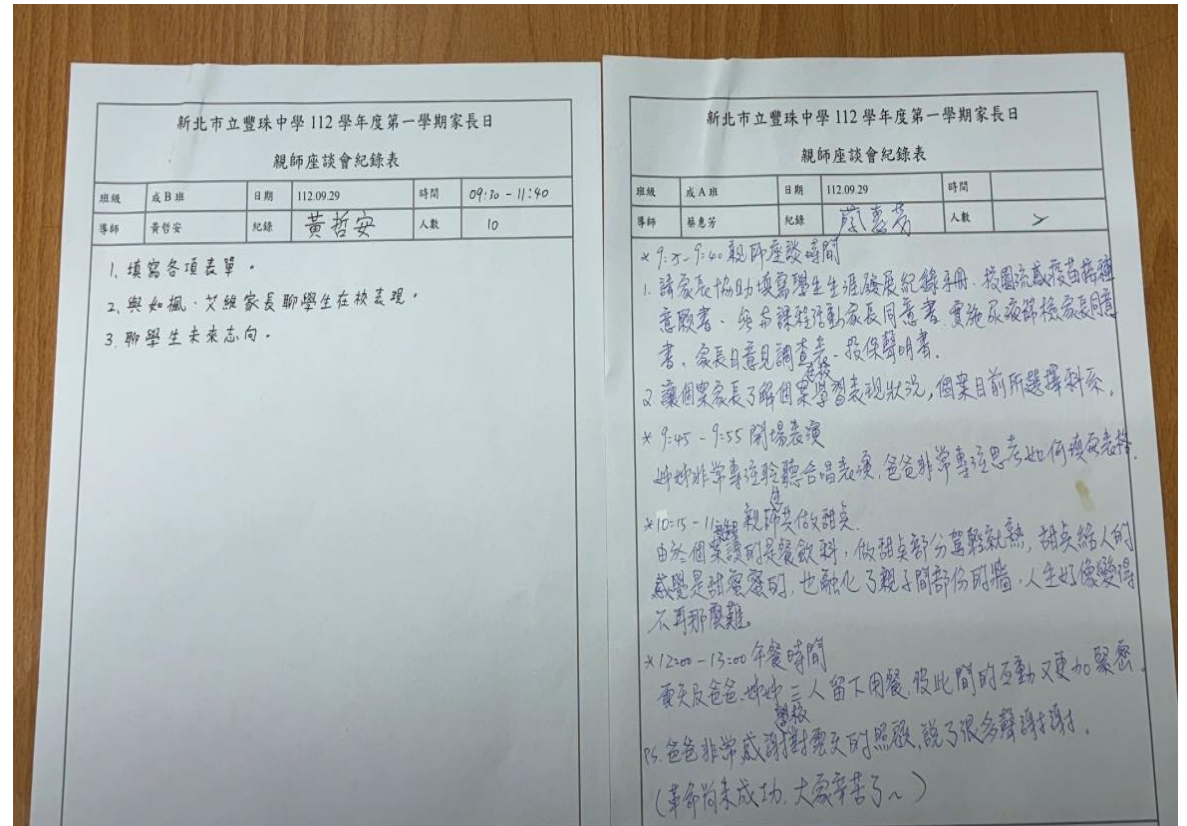 新北市立豐珠中學 112 學年度第一學期家長日
親師座談會紀錄表
班級 成B班 日期 112.09.29 時間 09:30 - 11:40
導師 黃哲安 紀錄 黃哲安 人數 10
1. 填寫各項表單。
2. 與如楓、艾維家長聊學生在校表現。
3. 聊學生未來志向。
新北市立豐珠中學 112 學年度第一學期家長日
親師座談會紀錄表
班級 成A班 日期 112.09.29 時間
導師 蔡惠芳 紀錄 蔡惠芳 人數 2
* 9:00-9:40 親師座談時間
1. 請家長協助填寫學生生涯發展紀錄手冊、校園流感疫苗接種
意願書、參與課程活動家長同意書、實施尿液篩檢家長同意
書、家長日意見調查表、投保聲明書.
2. 讓個案家長了解個案在校學習表現狀況,個案目前所選擇科系。
* 9:45 - 9:55 開場表演
姊姊非常專注聆聽合唱表演,爸爸非常專注思考如何填寫表格.
*10:15 - 11: 親師生共做甜點.
由於個案讀的是餐飲科,做甜點部分駕輕就熟,甜點給人的
感覺是甜蜜蜜的,也融化了親子間部份的牆,人生好像變得
不再那麼難。
*12:00 - 13:00 午餐時間
天及爸爸、姊姊三人留下用餐,彼此間的互動又更加緊密.
PS. 爸爸非常感謝學校對天的照顧,說了很多聲謝謝.
(革命尚未成功,大家辛苦了~)